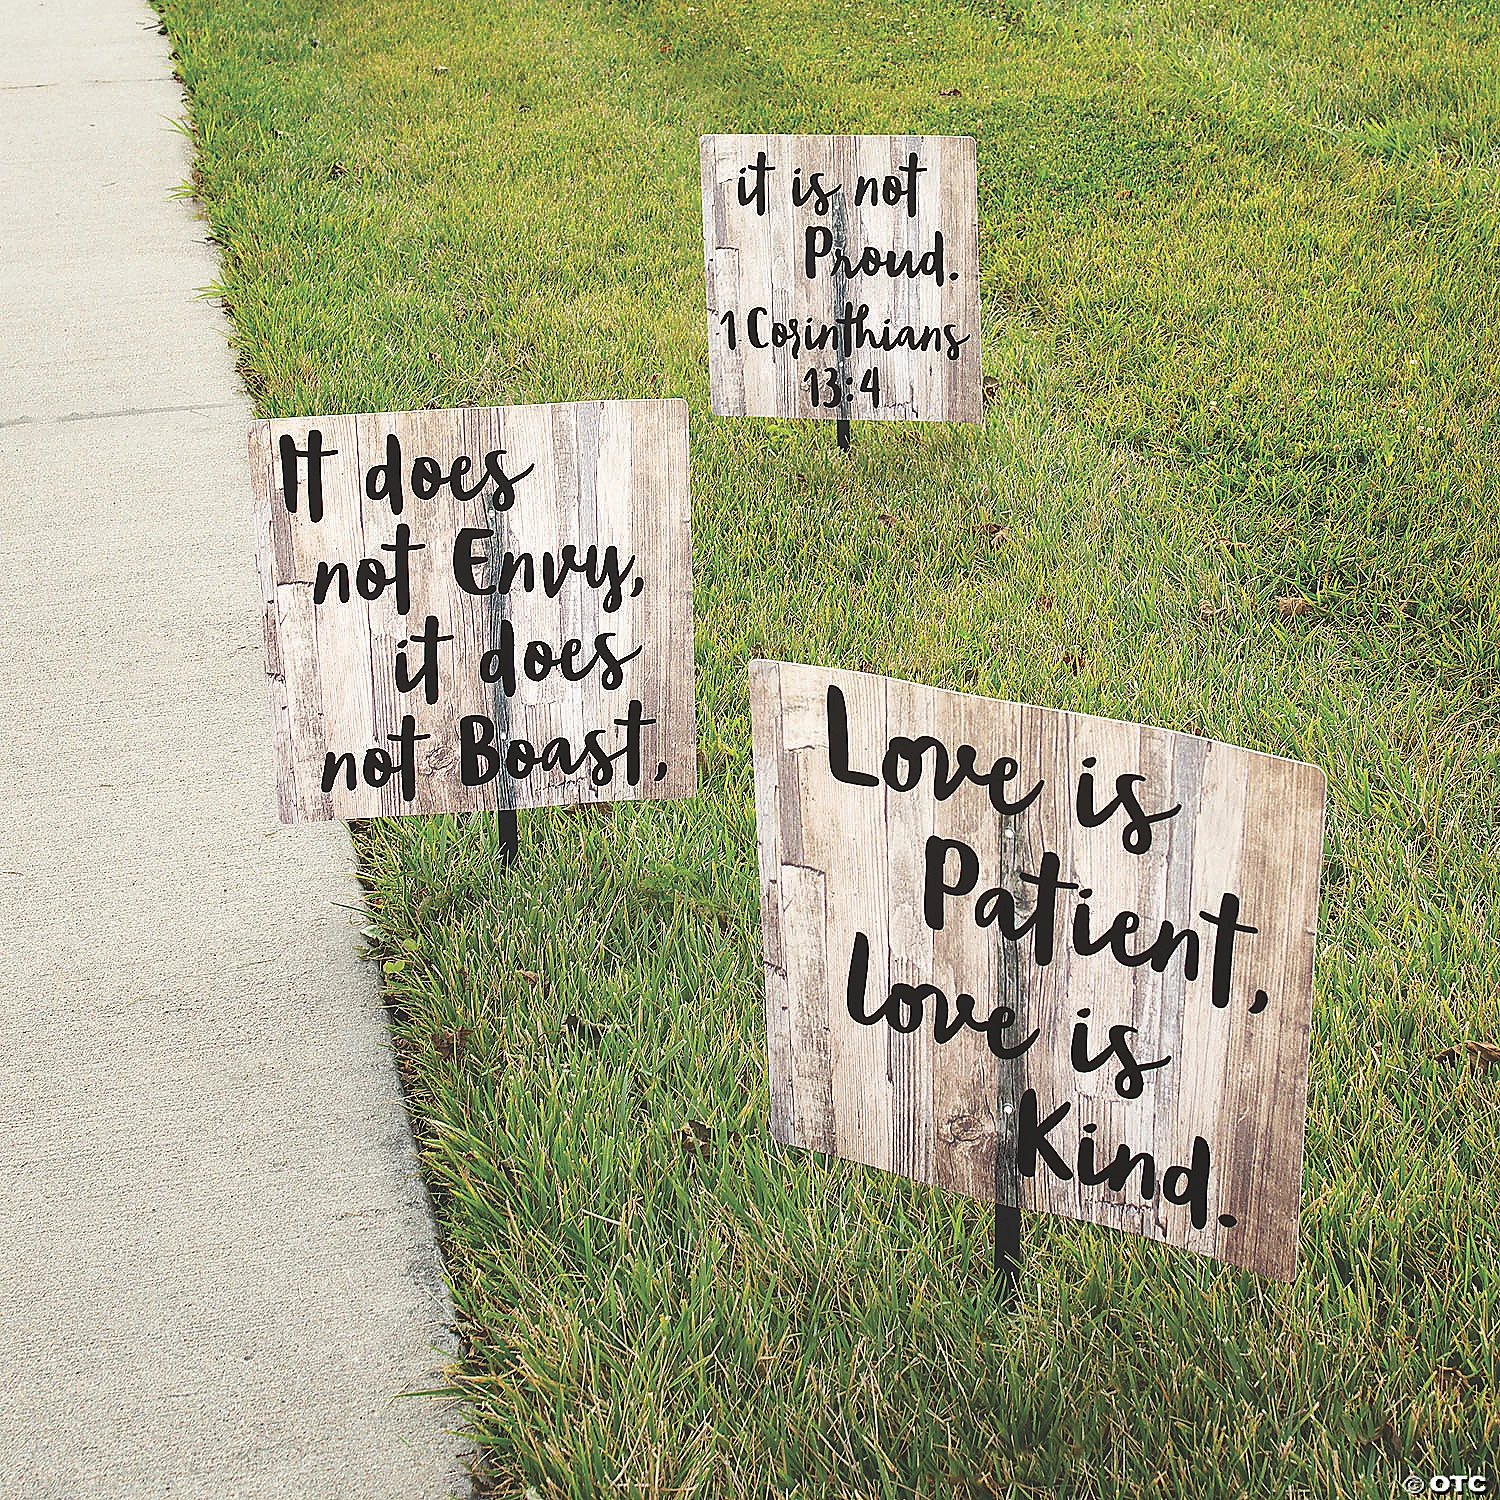 Love is
Patient,
Love is
Kind.
It does
not Envy,
it does
not Boast,
it is not
Proud.
1 Corinthians
13:4
© OTC